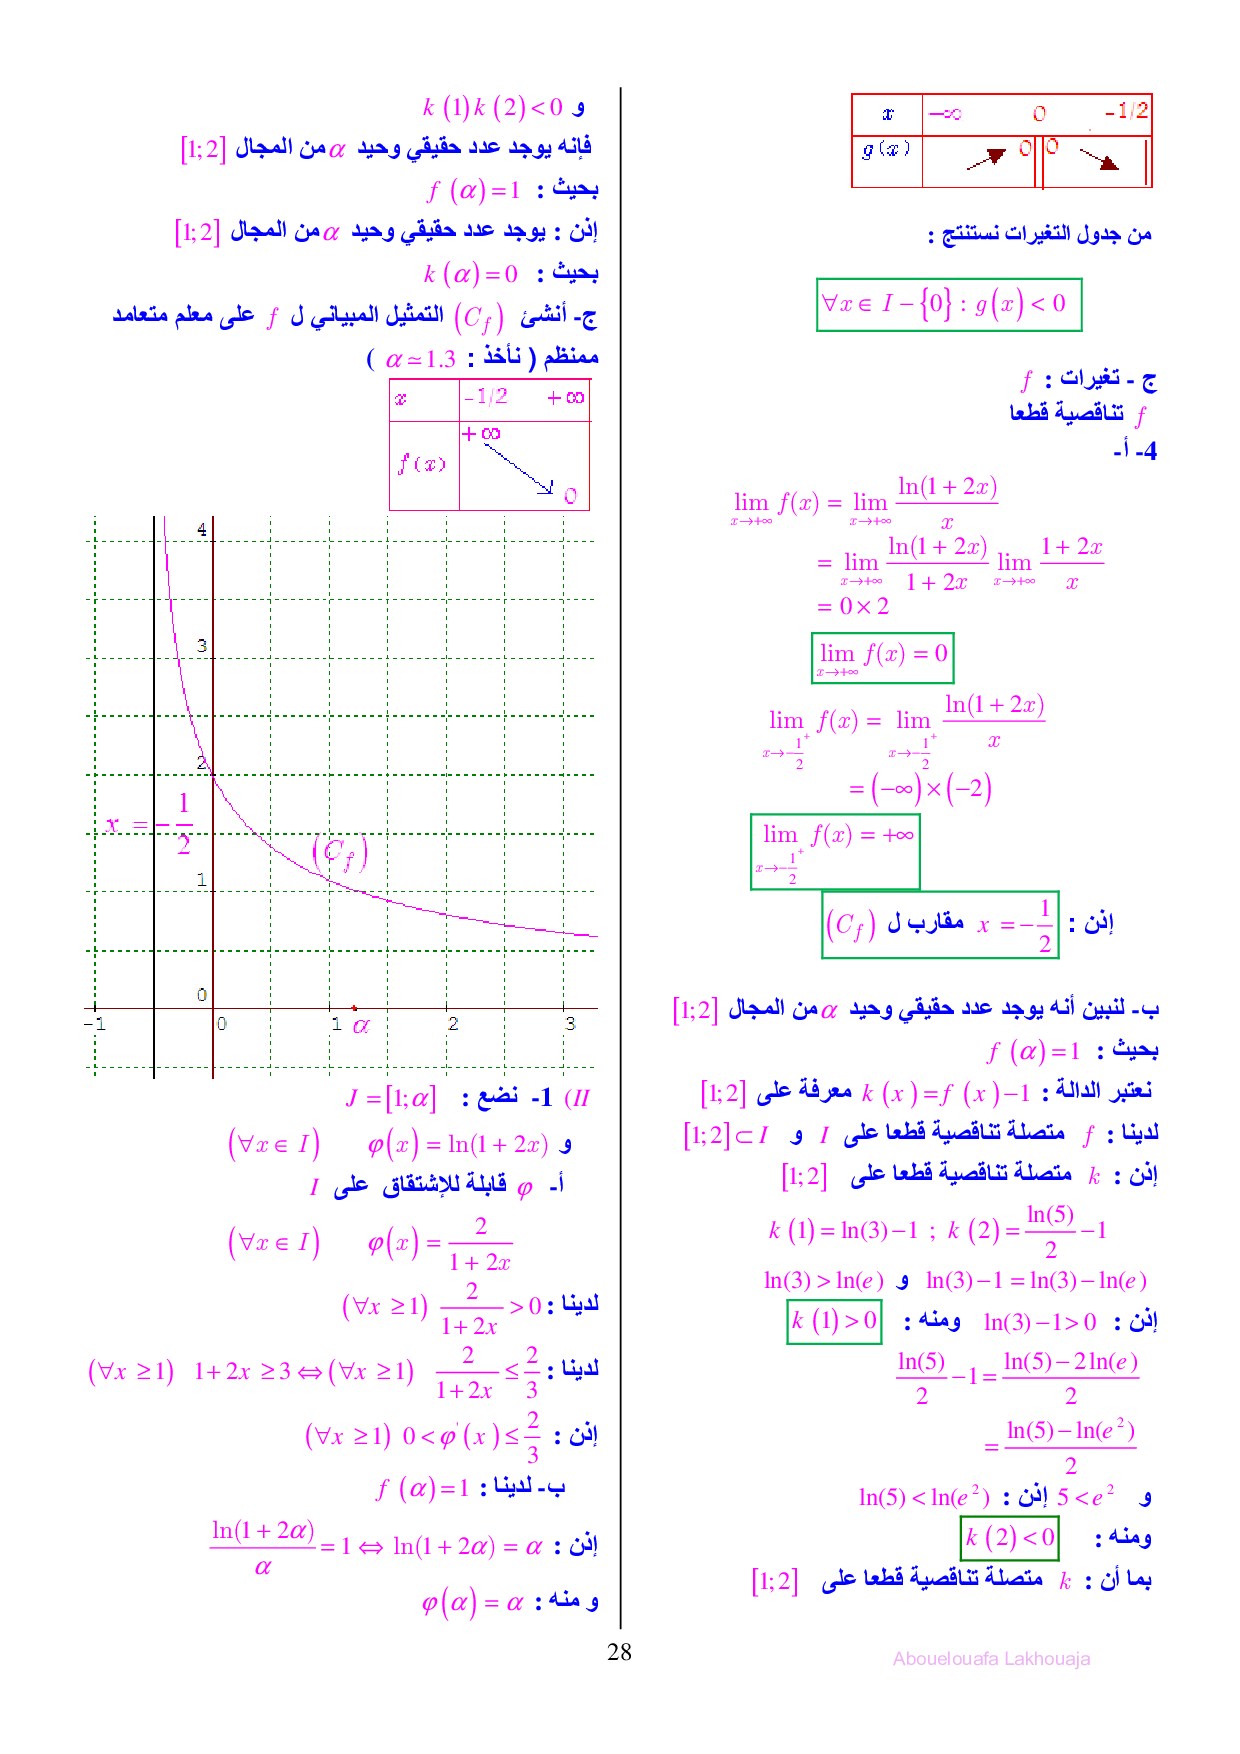 x −∞ 0 -1/2
g(x) 0 0
من جدول التغيرات نستنتج :
∀x ∈ I − {0} : g(x) < 0
ج - تغيرات : f
f تناقصية قطعا
4- أ-
lim_{x→+∞} f(x) = lim_{x→+∞} ln(1 + 2x)/x
= lim_{x→+∞} ln(1 + 2x)/(1 + 2x) lim_{x→+∞} (1 + 2x)/x
= 0 × 2
lim_{x→+∞} f(x) = 0
lim_{x→-1/2⁺} f(x) = lim_{x→-1/2⁺} ln(1 + 2x)/x
= (−∞) × (−2)
lim_{x→-1/2⁺} f(x) = +∞
إذن : x = −1/2 مقارب ل (C_f)
ب- لنبين أنه يوجد عدد حقيقي وحيد α من المجال [1;2]
بحيث : f(α) = 1
نعتبر الدالة : k(x) = f(x) − 1 معرفة على [1;2]
لدينا : f متصلة تناقصية قطعا على I و [1;2] ⊂ I
إذن : k متصلة تناقصية قطعا على [1;2]
k(1) = ln(3) − 1 ; k(2) = ln(5)/2 − 1
ln(3) − 1 = ln(3) − ln(e) و ln(3) > ln(e)
إذن : ln(3) − 1 > 0 ومنه : k(1) > 0
ln(5)/2 − 1 = (ln(5) − 2ln(e))/2
= (ln(5) − ln(e²))/2
و 5 < e² إذن : ln(5) < ln(e²)
ومنه : k(2) < 0
بما أن : k متصلة تناقصية قطعا على [1;2]
و k(1)k(2) < 0
فإنه يوجد عدد حقيقي وحيد α من المجال [1;2]
بحيث : f(α) = 1
إذن : يوجد عدد حقيقي وحيد α من المجال [1;2]
بحيث : k(α) = 0
ج- أنشئ (C_f) التمثيل المبياني ل f على معلم متعامد
ممنظم ( نأخذ : α ≃ 1.3 )
x -1/2 +∞
f(x) +∞ 0
4
3
2
x = −1/2
(C_f)
1
0
-1 0 1 α 2 3
II) 1- نضع : J = [1;α]
و φ(x) = ln(1 + 2x) (∀x ∈ I)
أ- φ قابلة للإشتقاق على I
(∀x ∈ I) φ(x) = 2/(1 + 2x)
لدينا : (∀x ≥ 1) 2/(1 + 2x) > 0
لدينا : (∀x ≥ 1) 1 + 2x ≥ 3 ⇔ (∀x ≥ 1) 2/(1 + 2x) ≤ 2/3
إذن : (∀x ≥ 1) 0 < φ'(x) ≤ 2/3
ب- لدينا : f(α) = 1
إذن : ln(1 + 2α)/α = 1 ⇔ ln(1 + 2α) = α
و منه : φ(α) = α
28
Abouelouafa Lakhouaja